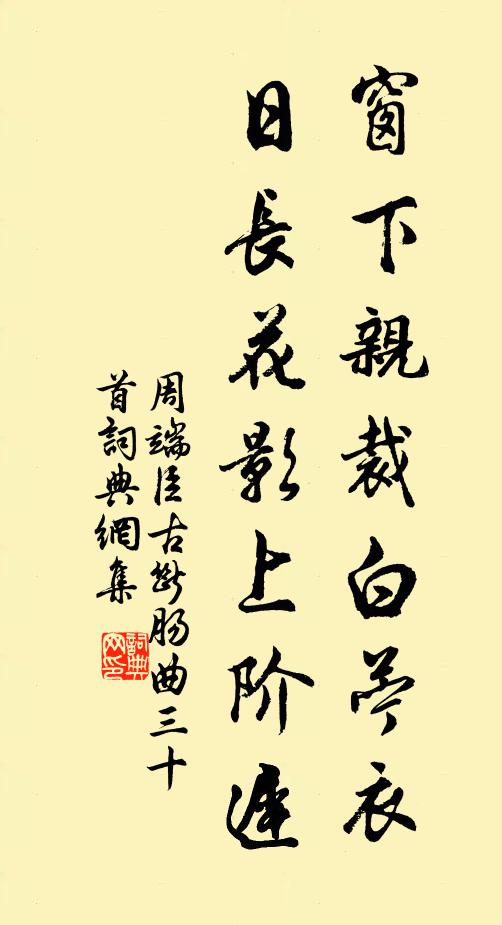 窗下親裁白苧衣
日長花影上阶遲
周端臣古斷肠曲三十
首詞典網集
詞典網印